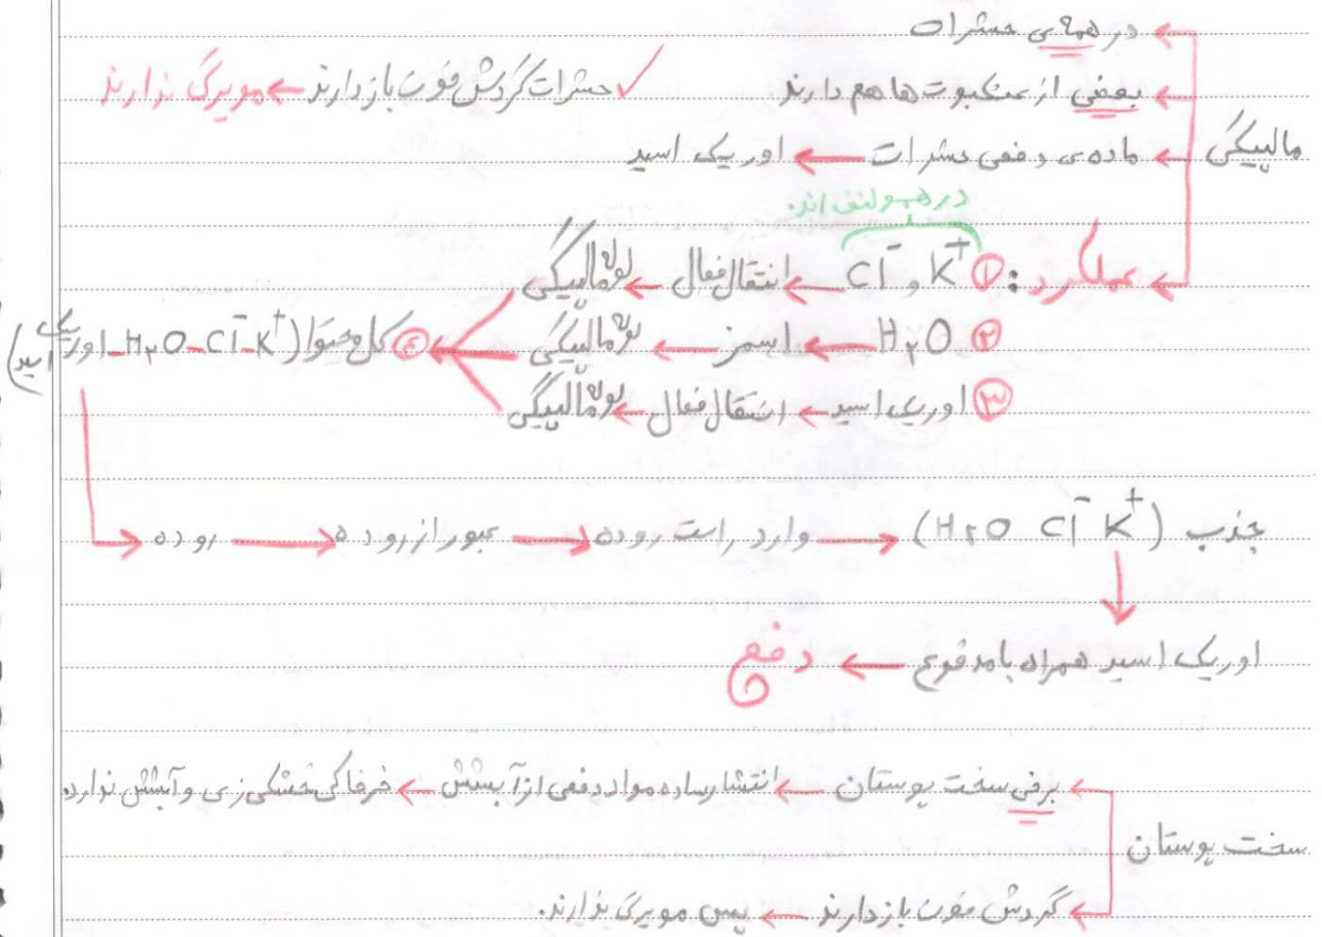 مالپیگی
در همه‌ی حشرات
بعضی از عنکبوت ها هم دارند
✓ حشرات گردش خون باز دارند ← مویرگ ندارند
ماده‌ی دفعی حشرات ← اوریک اسید
در همولنف اند.
عملکرد: ① K⁺ و Cl⁻ ← انتقال فعال ← لوله مالپیگی
② H₂O ← اسمز ← لوله مالپیگی
③ اوریک اسید ← انتقال فعال ← لوله مالپیگی
④ کل محتوا (K⁺-Cl⁻-H₂O-اوریک اسید)
روده → عبور از روده → وارد راست روده → جذب (K⁺ Cl⁻ H₂O)
اوریک اسید همراه با مدفوع ← دفع
سخت پوستان
برخی سخت پوستان ← انتشار ساده مواد دفعی از آبشش ← خرخاکی خشکی زی و آبشش ندارد
گردش خون باز دارند ← پس مویرگ ندارند.